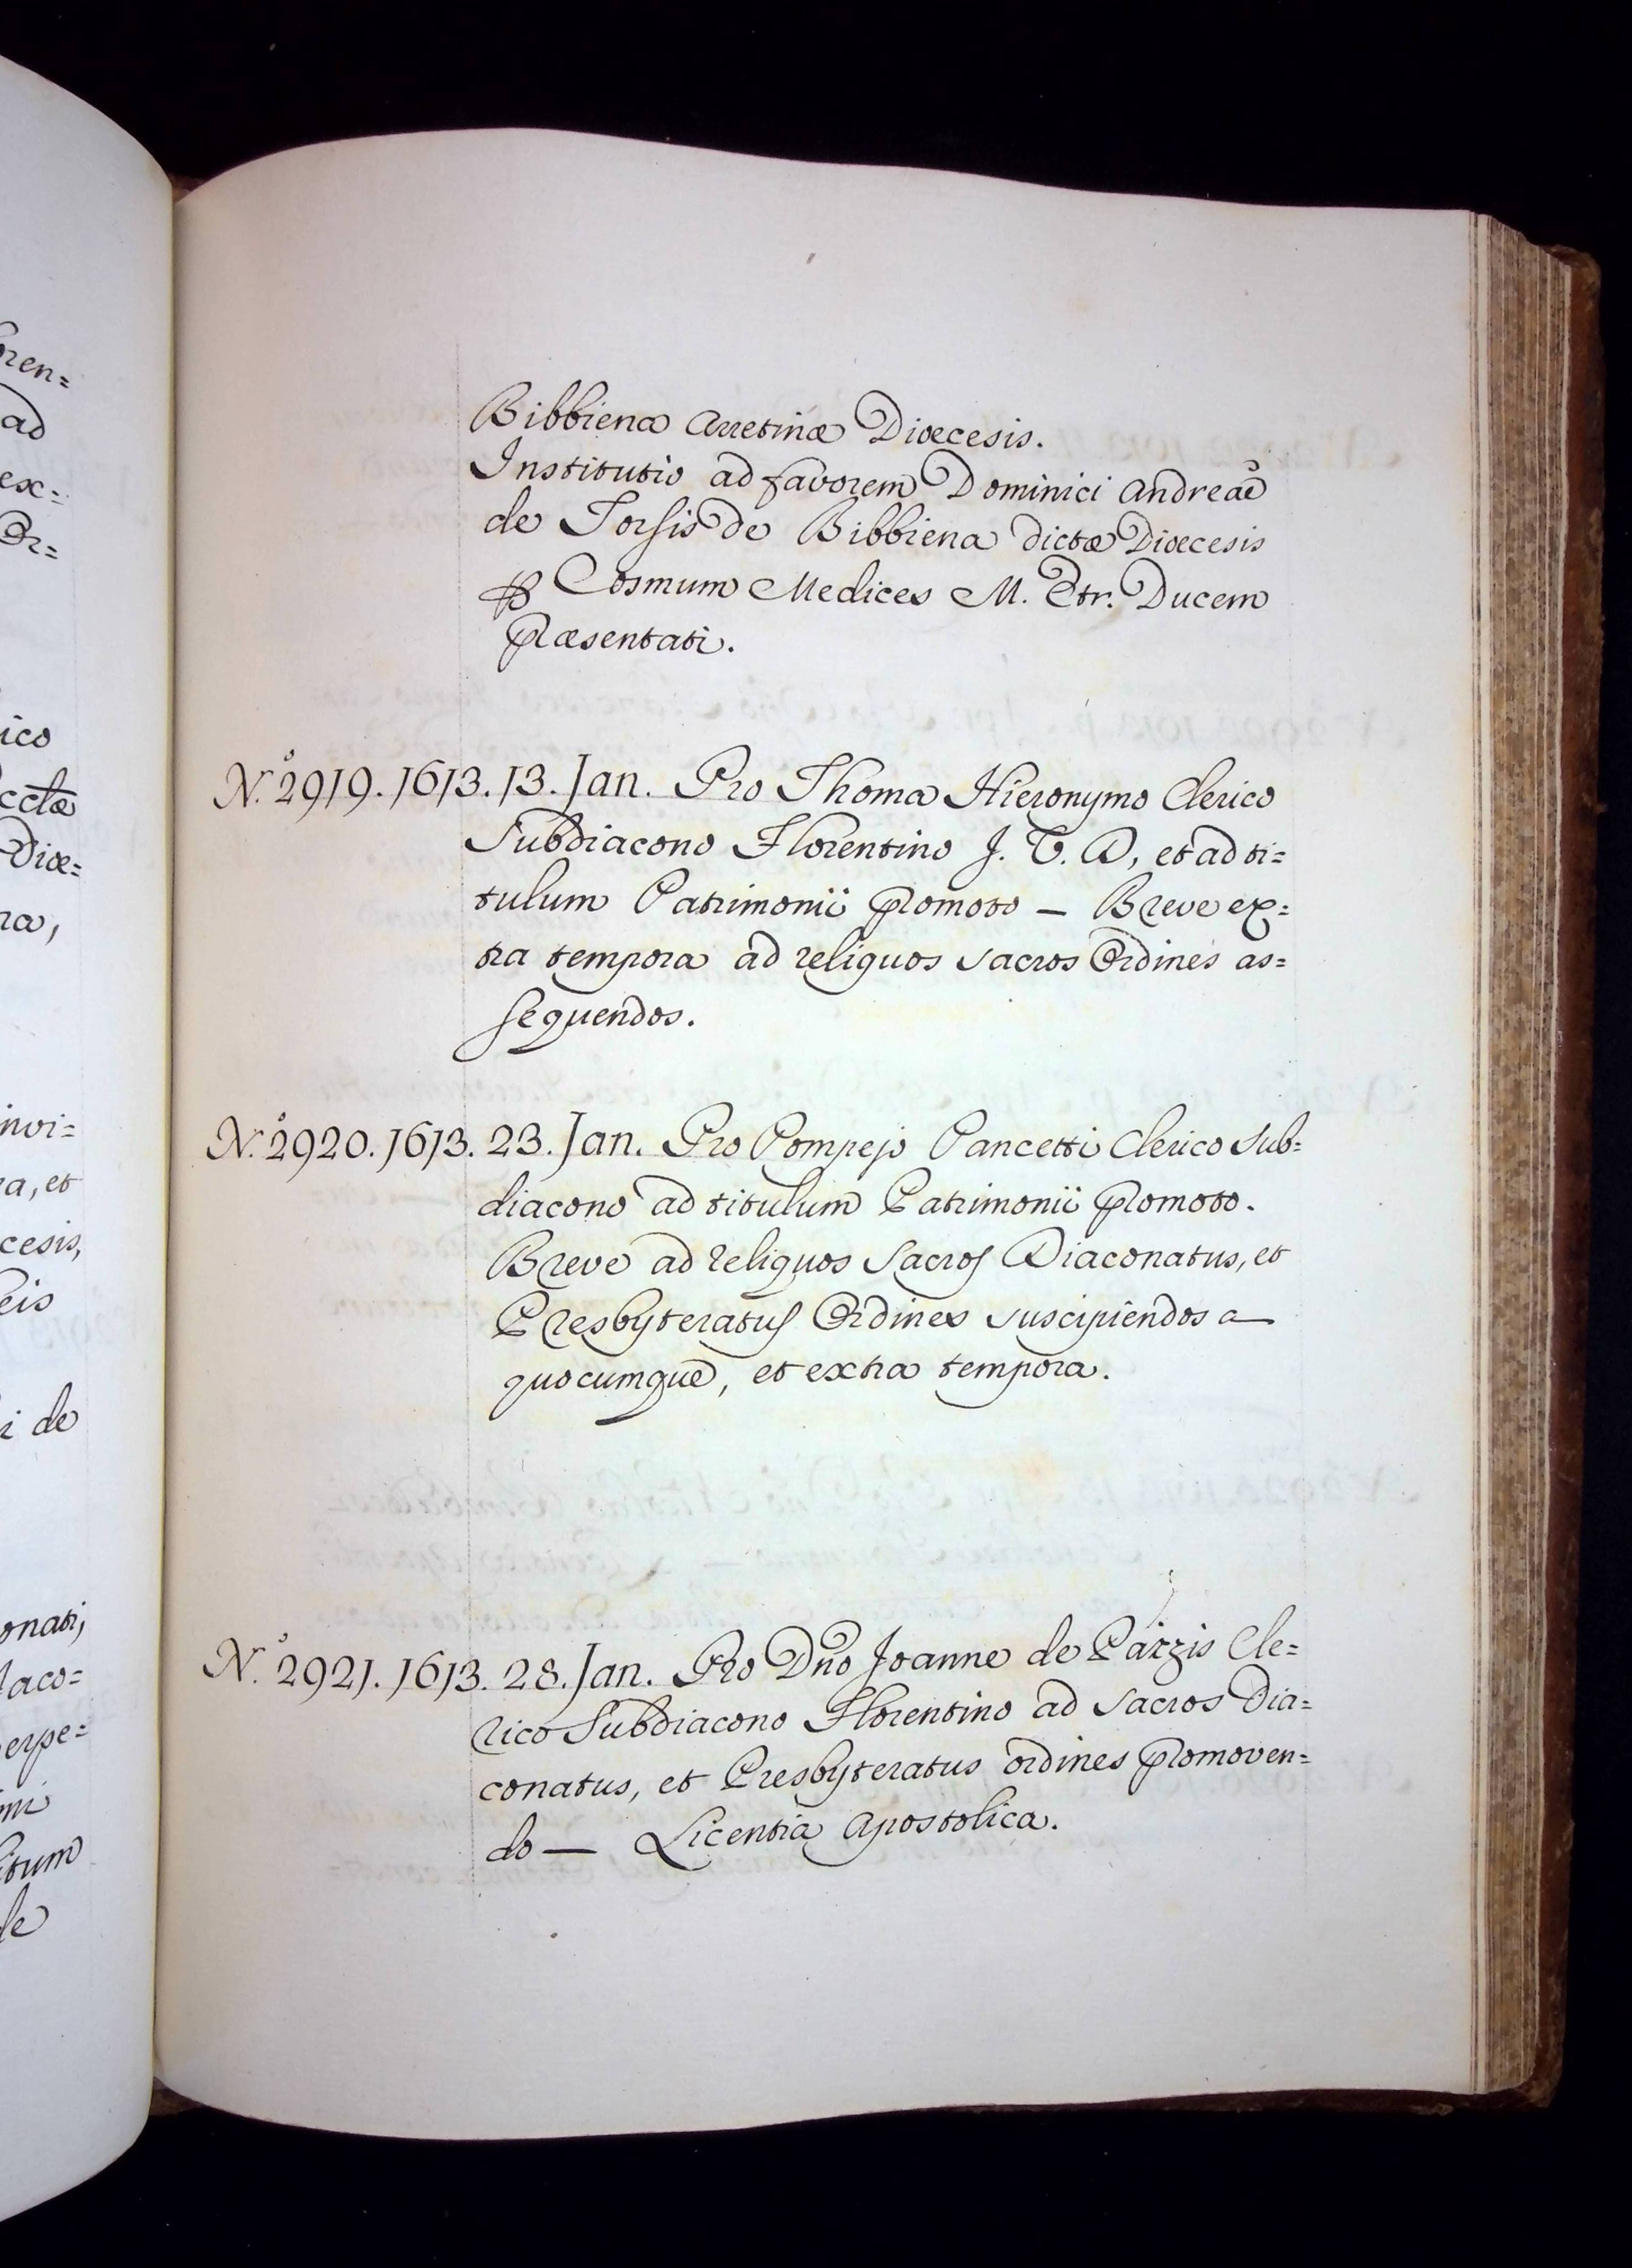 Bibbiena Arretinæ Diœcesis.
Institutio ad favorem Dominici Andreæ
de Torsis de Bibbiena dictæ Diœcesis
ꝑ Cosmum Medices M. Etr. Ducem
præsentati.
N.º 2919. 1613. 13. Jan. Pro Thoma Hieronymo Clerico
Subdiacono Florentino J. V. D, et ad ti=
tulum Patrimonii promoto — Breve ex=
tra tempora ad reliquos sacros Ordines as=
sequendos.
N.º 2920. 1613. 23. Jan. Pro Pompejo Pancetti Clerico Sub=
diacono ad titulum Patrimonii promoto.
Breve ad reliquos Sacros Diaconatus, et
Presbyteratus Ordines suscipiendos a
quocumque, et extra tempora.
N.º 2921. 1613. 28. Jan. Pro Dño Joanne de Pazzis Cle=
rico Subdiacono Florentino ad sacros Dia=
conatus, et Presbyteratus ordines promoven=
do — Licentia Apostolica.